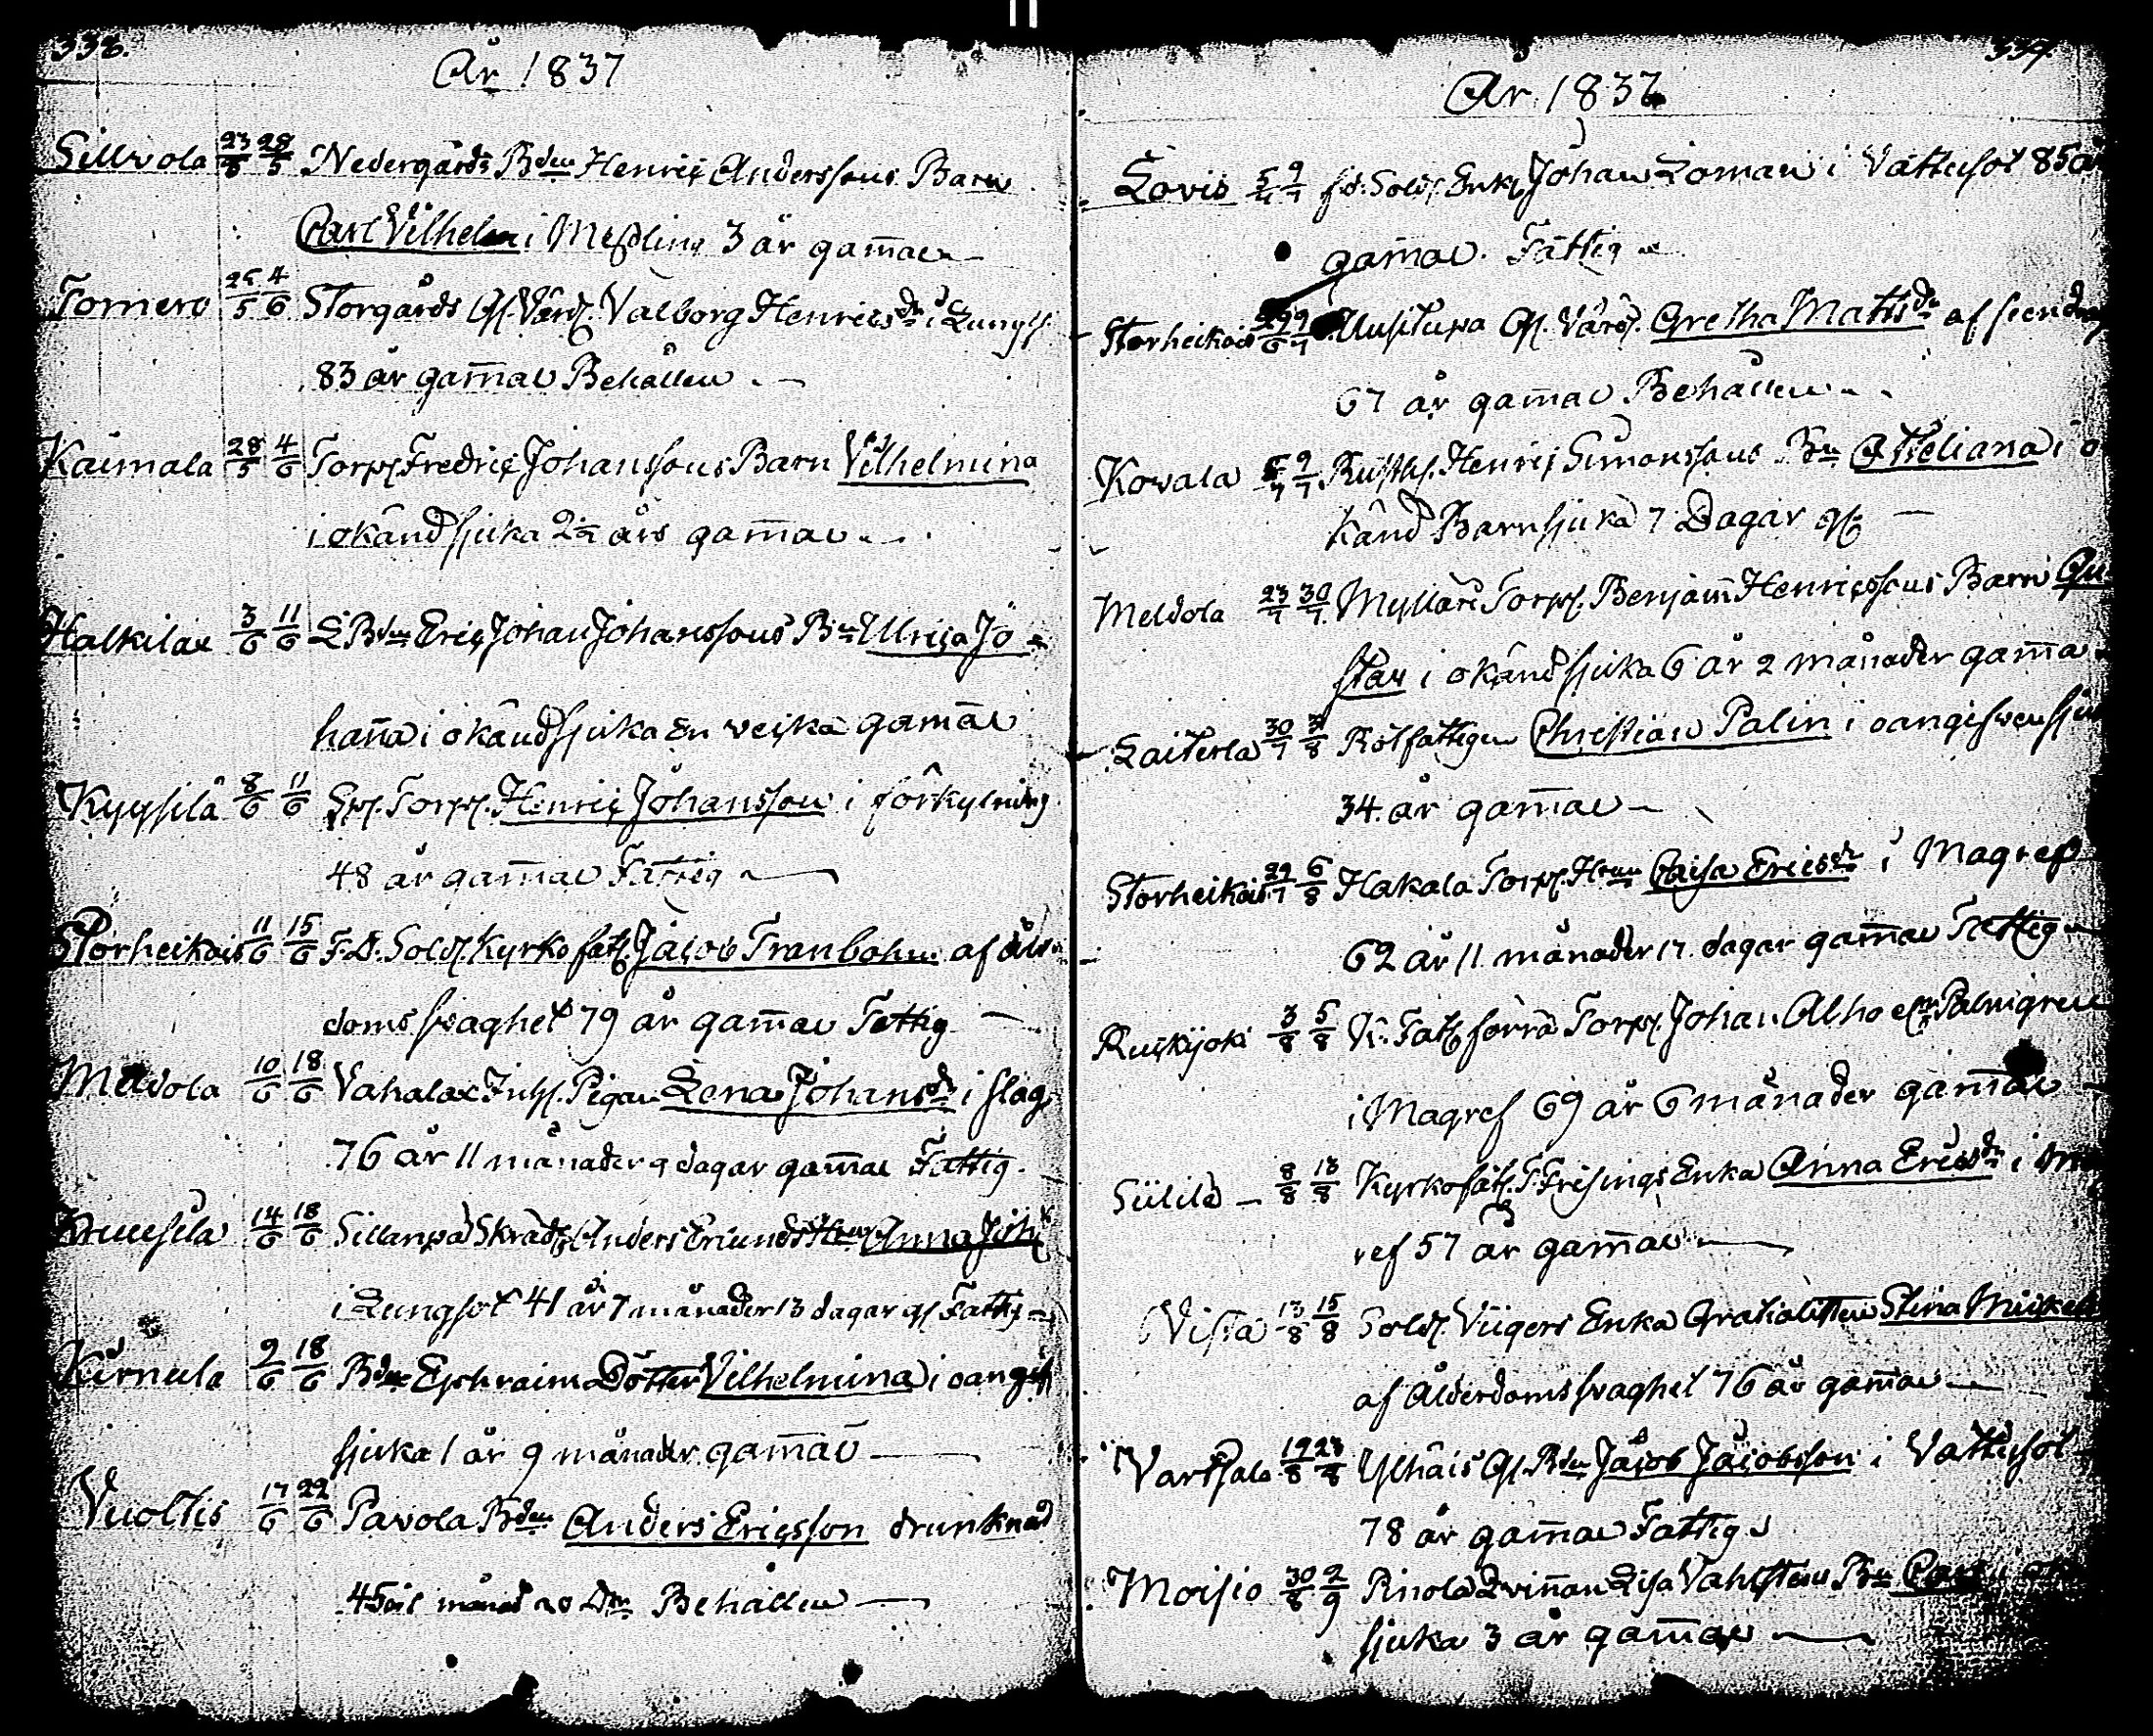 338.
År 1837
Sillvola 23/5 28/5 Nedergårds Bden Henric Anderssons Barn
Carl Vilhelm i Messling 3 år gamal
Tomero 25/5 4/6 Storgårds Gl. Värd. Valborg Henricsdr i Lungs.
83 år gamal Behållen
Kaimala 28/5 4/6 Torp. Fredric Johanssons Barn Vilhelmina
i okänd sjuka 2½ års gamal
Halkilax 3/6 11/6 L Bden Eric Johan Johanssons Bn Ulrica Jo
hanna i okänd sjuka En vecka gamal
Kyysilä 8/6 11/6 Torp. Henric Johansson i förkylning
48 år gamal Fattig
Storheikais 11/6 15/6 F.D. Sold. Kyrkofatt. Jacob Tranbohm af ålder
doms svaghet 79 år gamal Fattig
Meldola 10/6 18/6 Vahalax Inh. Pigan Lena Johansdr i slag
76 år 11 månader 9 dagar gamal Fattig.
14/6 18/6 Sillanpä Skrädd. Anders Erlunds Hru Anna Joh
i Lungsot 41 år 7 månader 13 dagar gl Fattig
Kirnula 9/6 18/6 Bden Ephraims Dotter Vilhelmina i oangif
sjuka 1 år 9 månader gamal
Vuoltis 17/6 22/6 Pavola Bden Anders Ericsson drunknad
45 månad 20 Behållen
339.
År 1837
Lovis 5/7 9/7 fd. Sold. Enkl. Johan Loman i Vattusot 85 år
gamal. Fattig
Storheikais 29/6 9/7 Uusitupa Gl. Värd. Gretha Matsdr af
67 år gamal Behållen
Kovala 5/7 9/7 Rusth. Henric Simonssons Bn Otteliana i o
känd Barnsjuka 7 Dagar gl
Meldola 23/7 30/7 Myllari Torp. Benjamin Henricssons Barn Gu
stav i okänd sjuka 6 år 2 månader gamal
Laiterla 30/7 Rotfattigen Christian Palin i oangifven sju
34 år gamal
Storheikais 29/7 6/8 Hakala Torp. Hrun Caisa Ericsdr i Magref
62 år 11 månader 17 dagar gamal Fattig
Ruckijoki 3/8 5/8 K. Fatt. förra Torp. Johan Alho el. Palmgren
i Magref 69 år 6 månader gamal
Siililä 8/8 13/8 Kyrkofatt. Frisings Enka Anna Ericsdr i Mag
ref 57 år gamal
Vista 13/8 15/8 Sold. Viigers Enka Stina Mickels
af Ålderdomssvaghet 76 år gamal
Vartsala 19/8 23/8 Ylhäis Gl. Bden Jacob Jacobsson i Vattusot
78 år gamal Fattig
Moisio 30/8 2/9 Rinola Qvinnan Lisa Vahlsten Bn Carl i
sjuka 3 år gamal